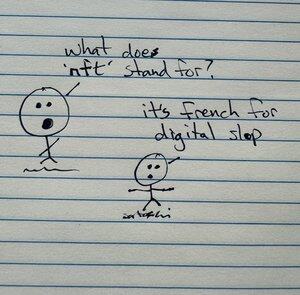 what does
'nft' stand for?
it's french for
digital slop